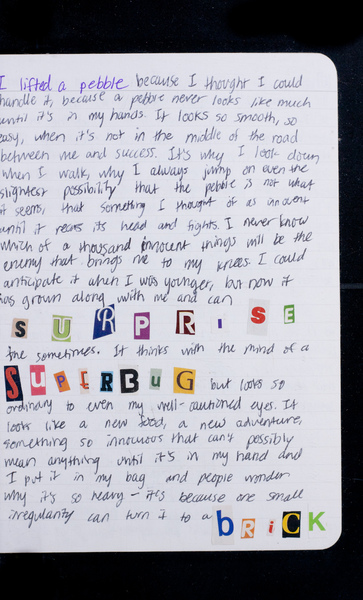 I lifted a pebble because I thought I could
handle it, because a pebble never looks like much
until it's in my hands. It looks so smooth, so
easy, when it's not in the middle of the road
between me and success. It's why I look down
when I walk, why I always jump on even the
slightest possibility that the pebble is not what
it seems, that something I thought of as innocent
until it rears its head and fights. I never know
which of a thousand innocent things will be the
enemy that brings me to my knees. I could
anticipate it when I was younger, but now it
has grown along with me and can
SURPRISE
me sometimes. It thinks with the mind of a
SUPERBUG but looks so
ordinary to even my well-cautioned eyes. It
looks like a new food, a new adventure,
something so innocuous that can't possibly
mean anything until it's in my hand and
I put it in my bag and people wonder
why it's so heavy – it's because one small
irregularity can turn it to a bRiCK